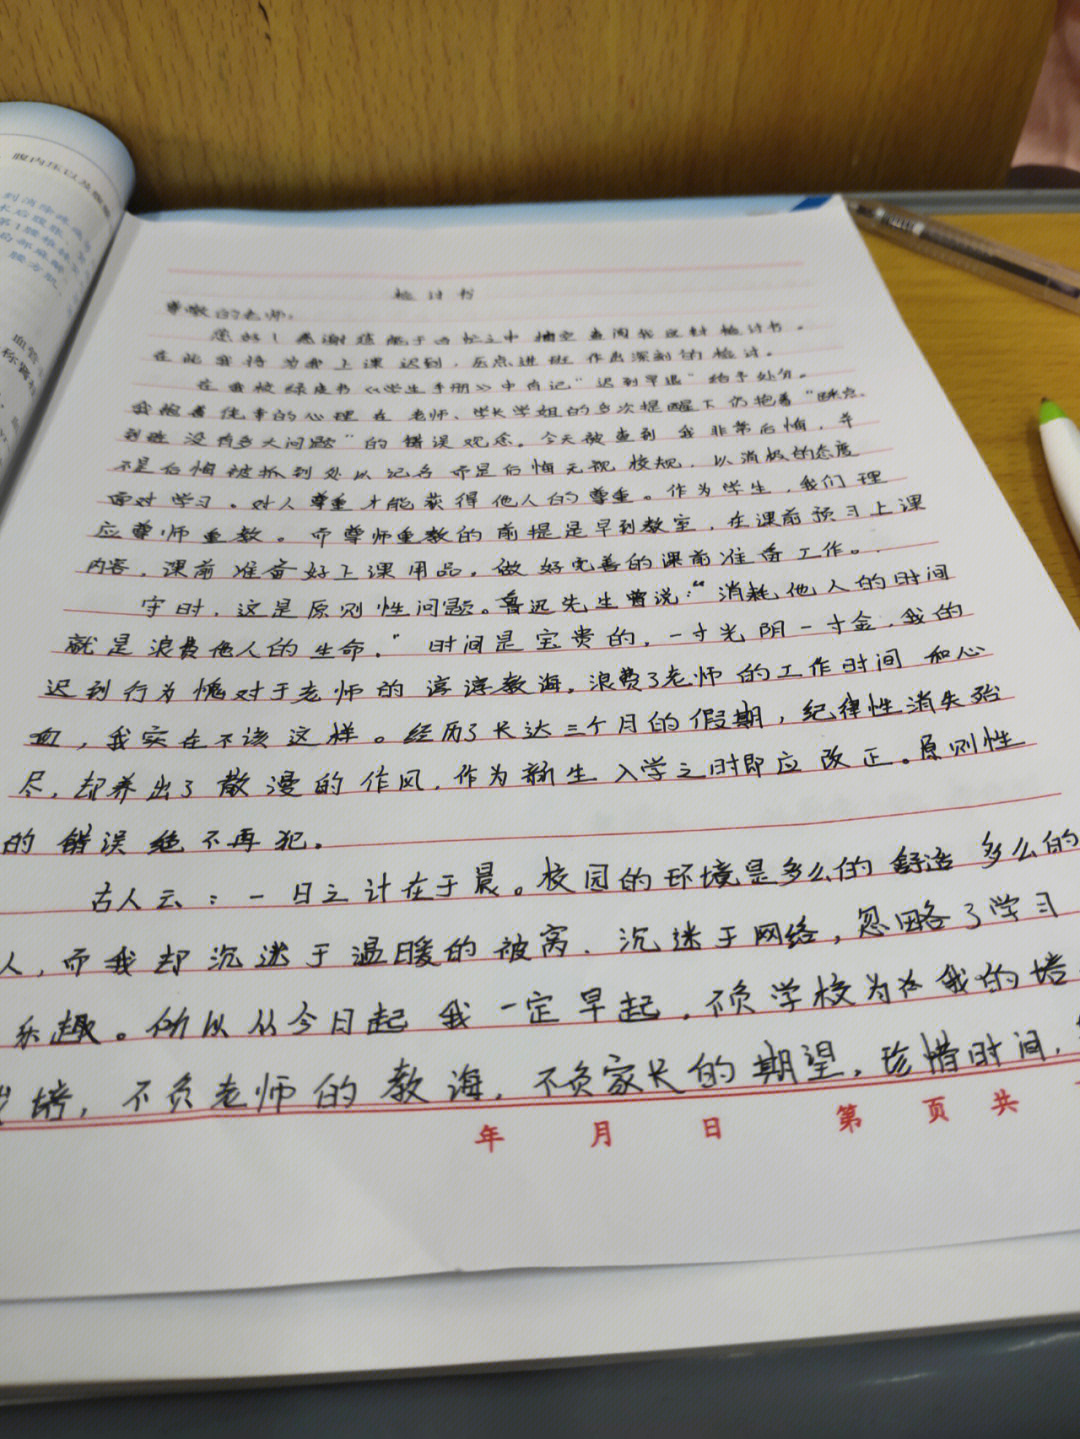 检讨书
尊敬的老师:
您好!感谢您能于百忙之中抽空查阅我这封检讨书。
在此我将为我上课迟到,压点进班作出深刻的检讨。
在我校绿皮书《学生手册》中有记"迟到早退"给予处分。
我抱着侥幸的心理在老师、学长学姐的多次提醒下仍抱着"踩点
到班没有多大问题"的错误观念。今天被查到我非常后悔,并
不是后悔被抓到处以记名而是后悔无视校规,以消极的态度
面对学习。对人尊重才能获得他人的尊重。作为学生,我们理
应尊师重教。而尊师重教的前提是早到教室,在课前预习上课
内容,课前准备好上课用品,做好完善的课前准备工作。
守时,这是原则性问题。鲁迅先生曾说:"消耗他人的时间
就是浪费他人的生命。"时间是宝贵的,一寸光阴一寸金,我的
迟到行为愧对于老师的谆谆教海,浪费了老师的工作时间和心
血,我实在不该这样。经历了长达三个月的假期,纪律性消失殆
尽,却养出了散漫的作风,作为新生入学之时即应改正。原则性
的错误绝不再犯。
古人云:一日之计在于晨。校园的环境是多么的舒适多么的
人,而我却沉迷于温暖的被窝.沉迷于网络,忽略了学习
乐趣。所以从今日起我一定早起,不负学校为我的培
培,不负老师的教海,不负家长的期望,珍惜时间,
年 月 日 第 页 共
腹内压以及腹
血管
称肾